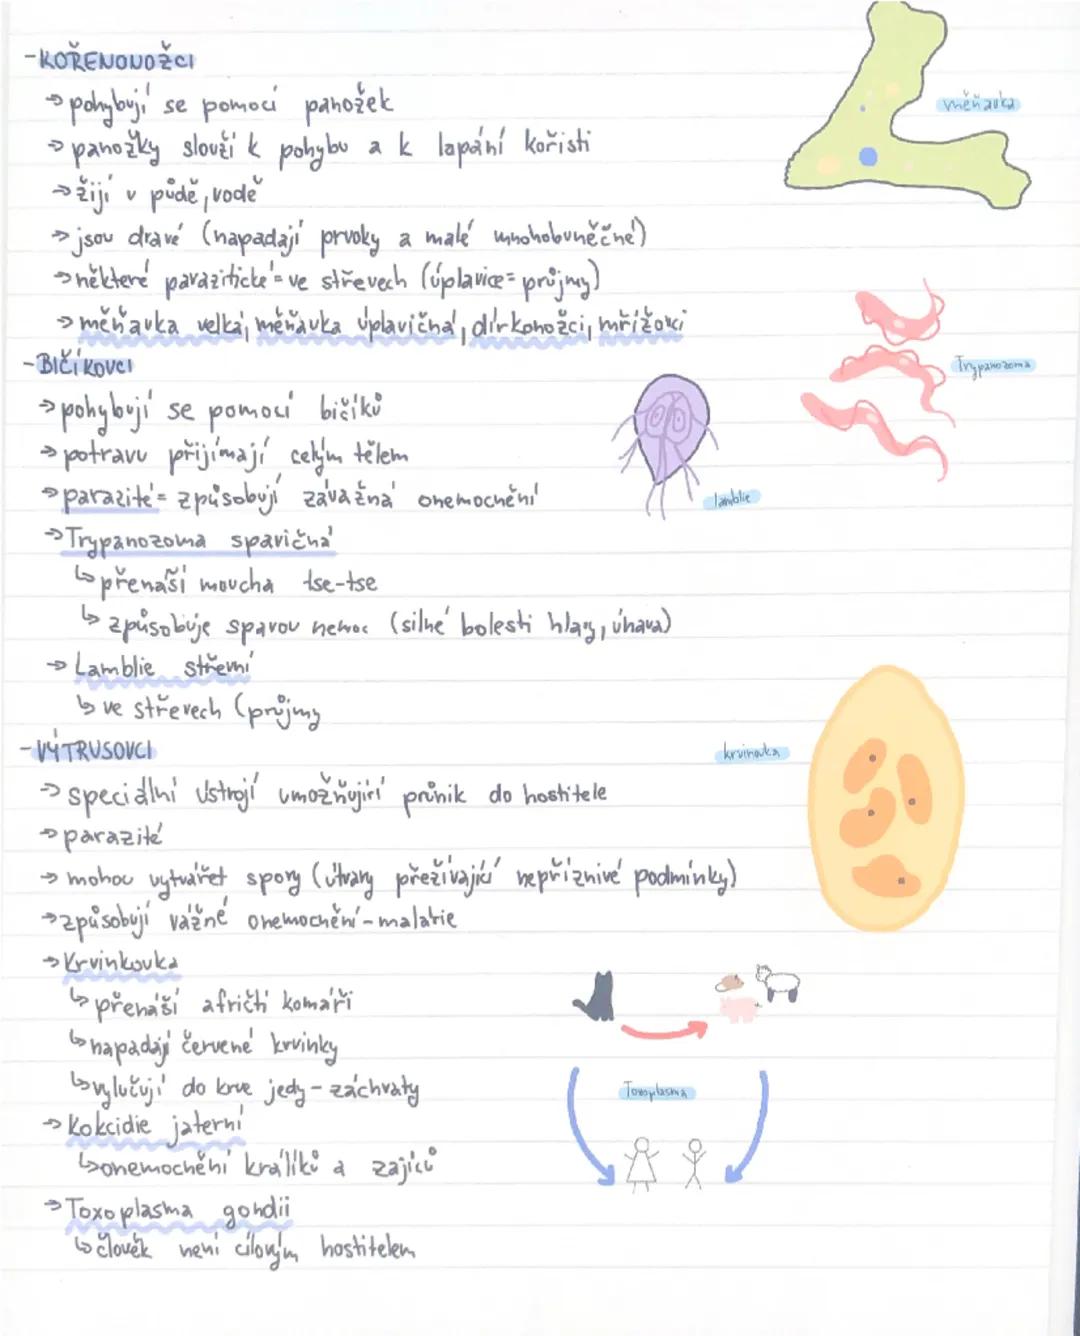 - KOŘENONOŽCI
→ pohybují se pomocí panožek
→ panožky slouží k pohybu a k lapání kořisti
→ žijí v půdě, vodě
→ jsou dravé (napadají prvoky a malé mnohobuněčné)
→ některé parazitické = ve střevech (úplavice = průjmy)
→ měňavka velká, měňavka úplavičná, dírkonožci, mřížovci
měňavka
- BIČÍKOVCI
→ pohybují se pomocí bičíků
→ potravu přijímají celým tělem
→ parazité = způsobují závažná onemocnění
→ Trypanozoma spavičná
↳ přenáší moucha tse-tse
↳ způsobuje spavou nemoc (silné bolesti hlavy, únava)
→ Lamblie střevní
↳ ve střevech (průjmy
Trypanozoma
lamblie
- VÝTRUSOVCI
→ speciální ústrojí umožňující průnik do hostitele
→ parazité
→ mohou vytvářet spory (útvary přežívající nepříznivé podmínky)
→ způsobují vážné onemocnění - malarie
→ Krvinkovka
↳ přenáší afričtí komáři
↳ napadají červené krvinky
↳ vylučují do krve jedy - záchvaty
→ Kokcidie jaterní
↳ onemocnění králíků a zajíců
→ Toxoplasma gondii
↳ člověk není cílovým hostitelem
krvinovka
Toxoplasma